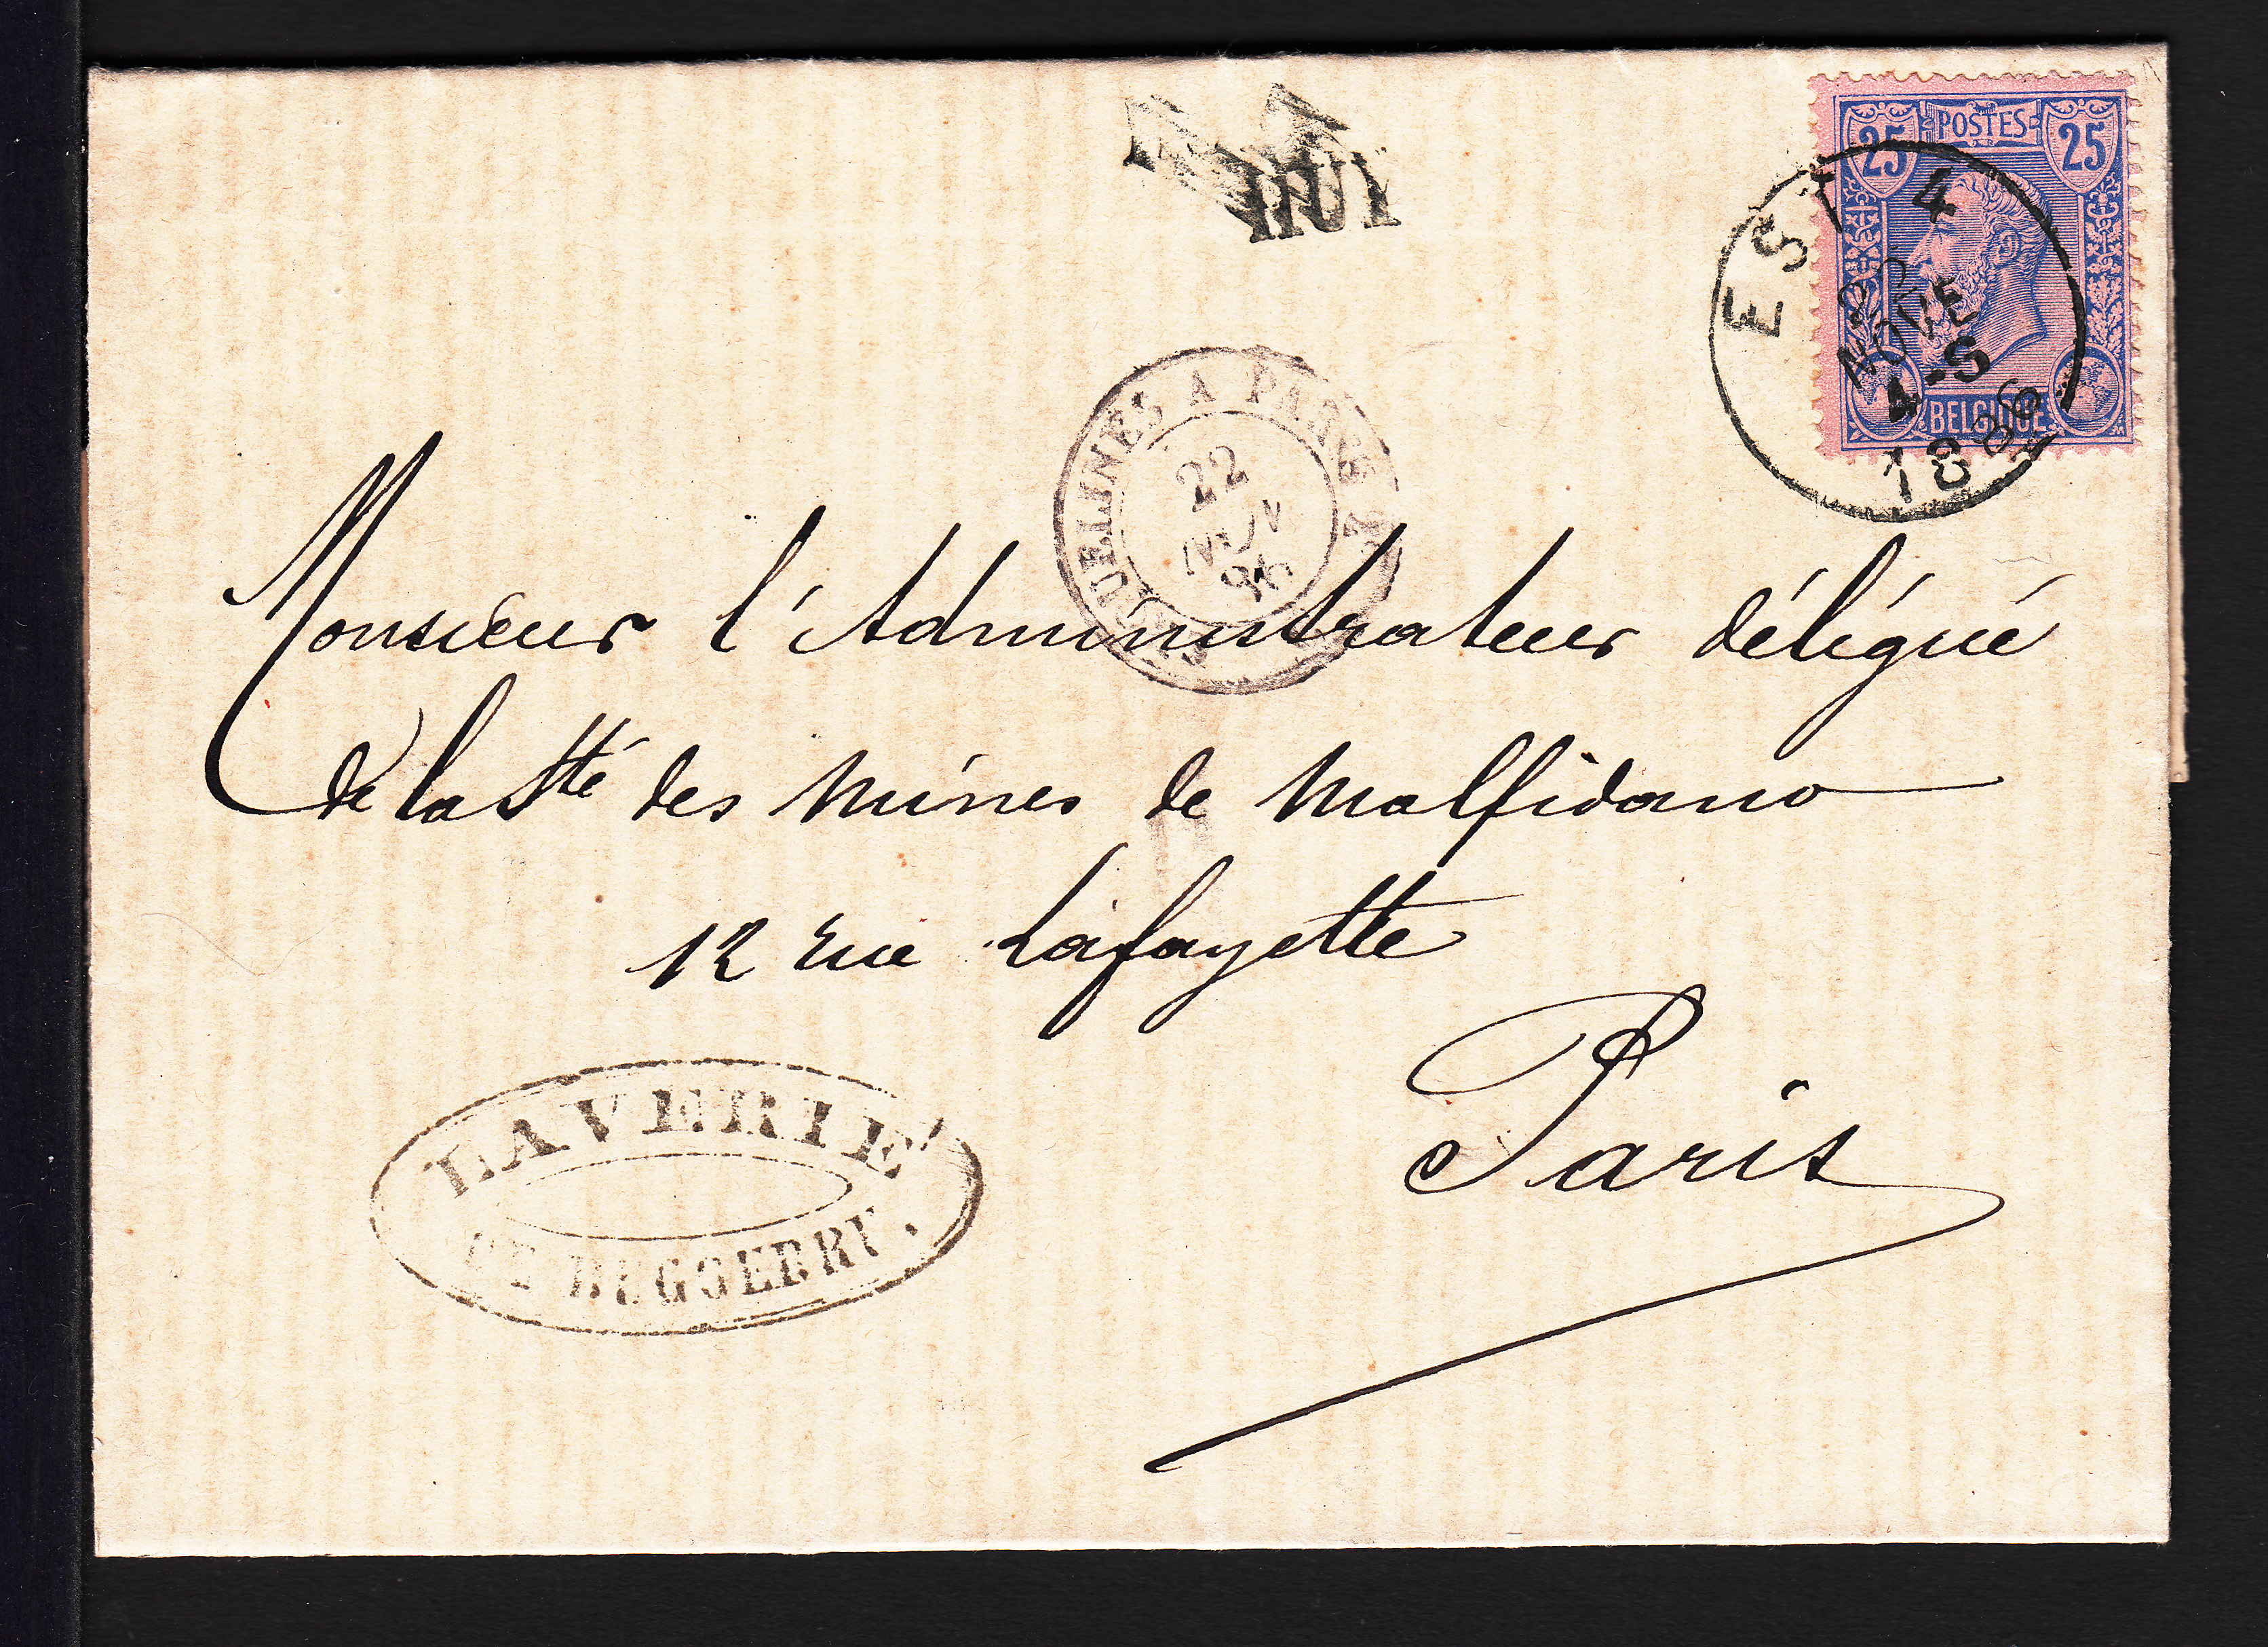 HUY
25 POSTES 25
BELGIQUE
EST 4
22
NOVE
4-S
1886
A PARIS
22
NOV
86
Monsieur l'Administrateur délégué
de la Sté des Mines de Malfidano
12 rue Lafayette
Paris
LAVERIE
BUGGERRU.